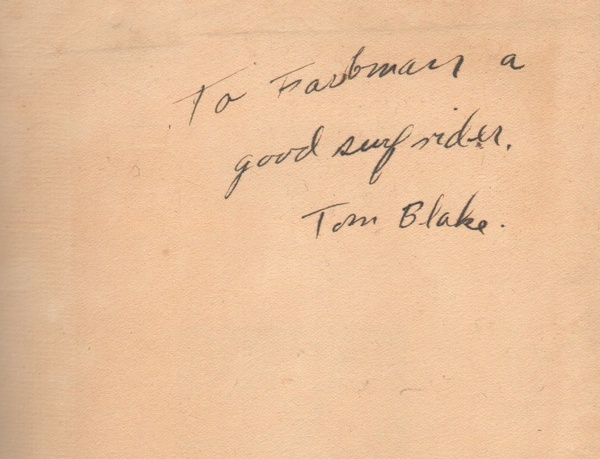 To Farbman a
good surf rider.
Tom Blake.